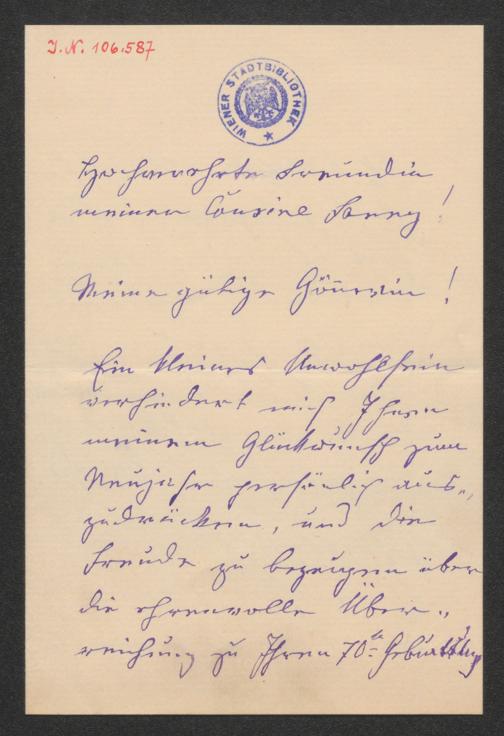 I.N. 106.587
WIENER STADTBIBLIOTHEK
Hochverehrte Freundin
meiner Cousine Fanny!
Meine gütige Gönnerin!
Ein kleines Unwohlsein
verhindert mich Ihnen
meinem Glückwunsch zum
Neujahr persönlich aus-
zudrücken, und die
Freude zu bezeugen über
die ehrenvolle Über-
reichung zu Ihrem 70te Geburtstag